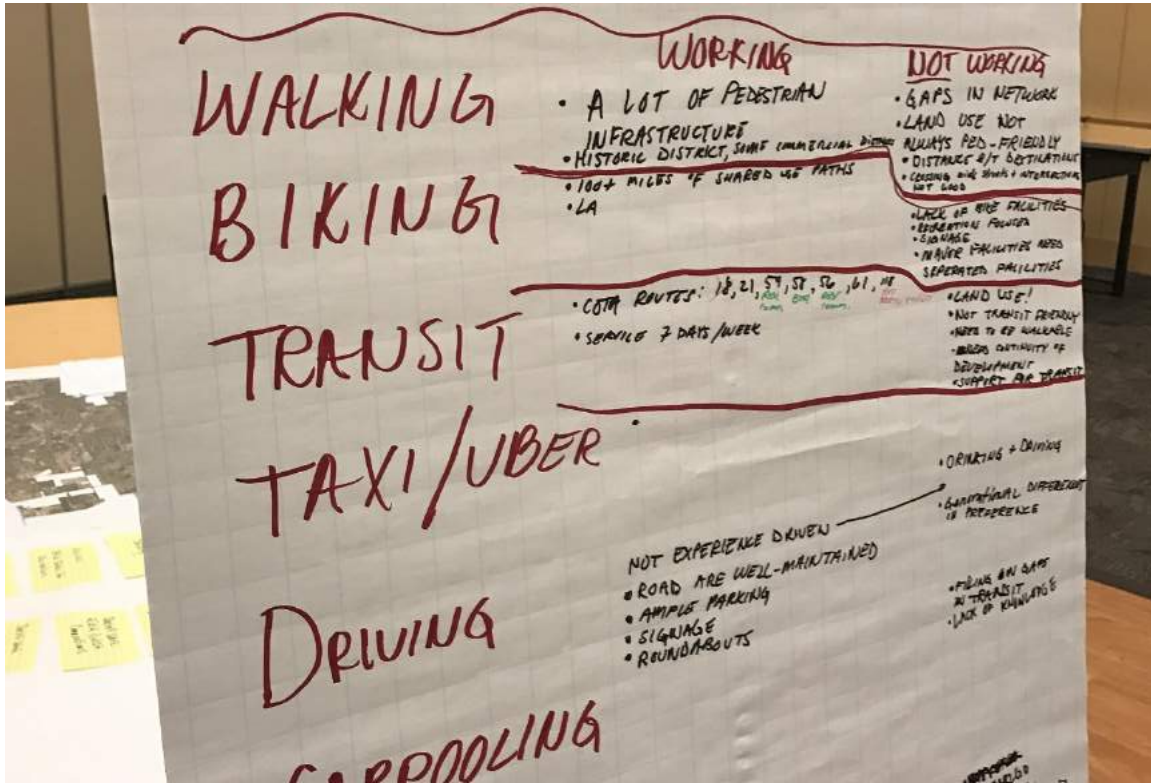 WORKING
NOT WORKING
WALKING
• A LOT OF PEDESTRIAN
INFRASTRUCTURE
• HISTORIC DISTRICT, SOME COMMERCIAL
• GAPS IN NETWORK
• LAND USE NOT
ALWAYS PED-FRIENDLY
• DISTANCE B/T DESTINATIONS
• CROSSING wide streets + INTERSECTIONS
NOT GOOD
BIKING
• 100+ MILES OF SHARED USE PATHS
• LA
• LACK OF BIKE FACILITIES
• RECREATION FOCUSED
• SIGNAGE
• MAJOR FACILITIES NEED
SEPERATED FACILITIES
TRANSIT
• COTA ROUTES: 18, 21, 59, 58, 56, , 61,
• SERVICE 7 DAYS/WEEK
• LAND USE!
• NOT TRANSIT FRIENDLY
• NEED TO BE WALKABLE
• CONTINUITY OF
DEVELOPMENT
• SUPPORT FOR TRANSIT
TAXI/UBER
•
• DRINKING + DRIVING
• GENERATIONAL DIFFERENT
IN PREFERENCE
DRIVING
NOT EXPERIENCE DRIVEN
• ROAD ARE WELL-MAINTAINED
• AMPLE PARKING
• SIGNAGE
• ROUNDABOUTS
• FILING ON GAPS
IN TRANSIT
• LACK OF KNOWLEDGE
CARPOOLING